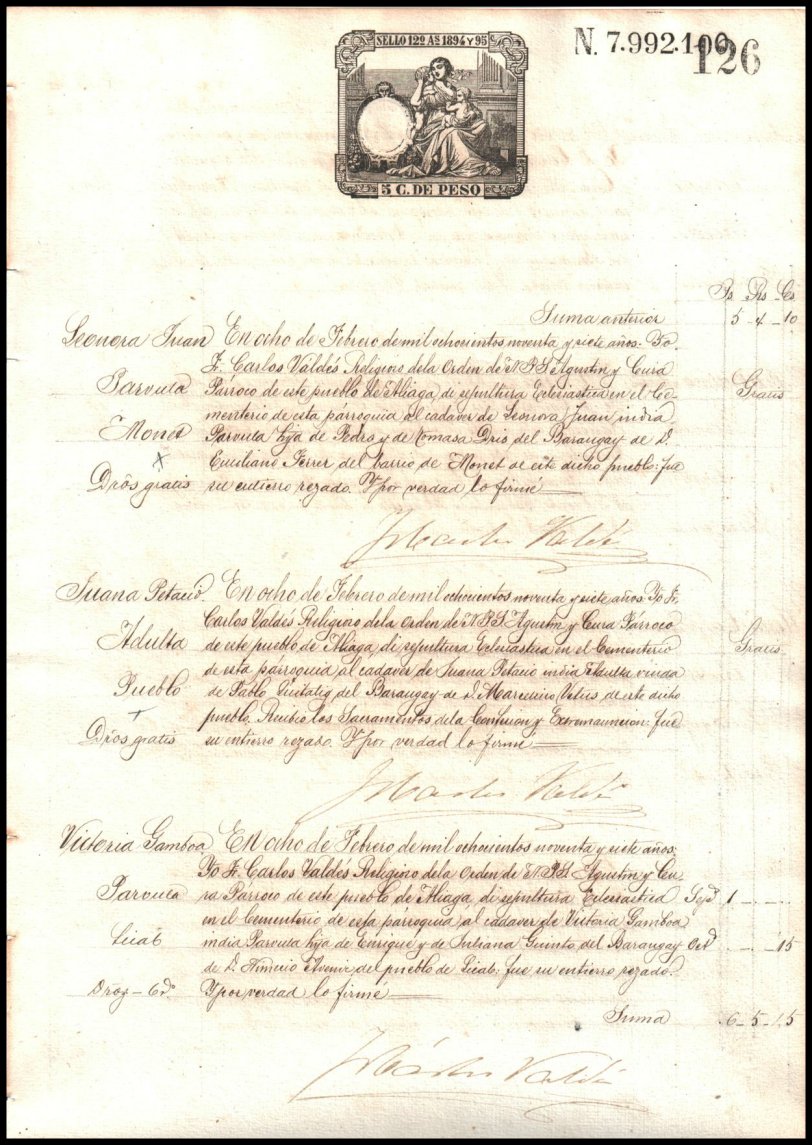 SELLO 12º AS 1894 Y 95
N. 7.992.106
126
5 C. DE PESO
Ps. Rs. Cs
Suma anterior 5 - 4 - 10
Leonora Juan
Parvula
Monet
Drôs gratis
En ocho de Febrero de mil ochocientos noventa y siete años: Yo
Fr. Carlos Valdés Religioso de la Orden de N.P.S. Agustin y Cura
Párroco de este pueblo de Aliaga, di sepultura Eclesiastica en el Ce- Gratis
menterio de esta parroquia al cadaver de Leonora Juan india
Parvula hija de Pedro y de Tomasa Dris del Barangay de D.
Emiliano Ferrer del barrio de Monet de este dicho pueblo: fue
su entierro rezado. Y por verdad lo firmé
Fr Carlos Valdés
Juana Petacio
Adulta
Pueblo
Drôs gratis
En ocho de Febrero de mil ochocientos noventa y siete años: Yo Fr.
Carlos Valdés Religioso de la Orden de N.P.S. Agustin y Cura Párroco
de este pueblo de Aliaga, di sepultura Eclesiastica en el Cementerio Gratis
de esta parroquia al cadaver de Juana Petacio india Adulta viuda
de Pablo del Barangay de D. Marcelino de este dicho
pueblo. Recibió los Sacramentos de la Confesion y Extremauncion: fue
su entierro rezado. Y por verdad lo firmé
Fr Carlos Valdés
Victoria Gamboa
Parvula
Licab
En ocho de Febrero de mil ochocientos noventa y siete años:
Yo Fr. Carlos Valdés Religioso de la Orden de N.P.S. Agustin y Cu-
ra Parroco de este pueblo de Aliaga, di sepultura Eclesiastica 1
en el Cementerio de esta parroquia al cadaver de Victoria Gamboa
india Parvula hija de Enrique y de Juliana Guinto del Barangay 15
de D. del pueblo de Licab: fue su entierro rezado.
Y por verdad lo firmé
Suma 6 - 5 - 15
Fr Carlos Valdés